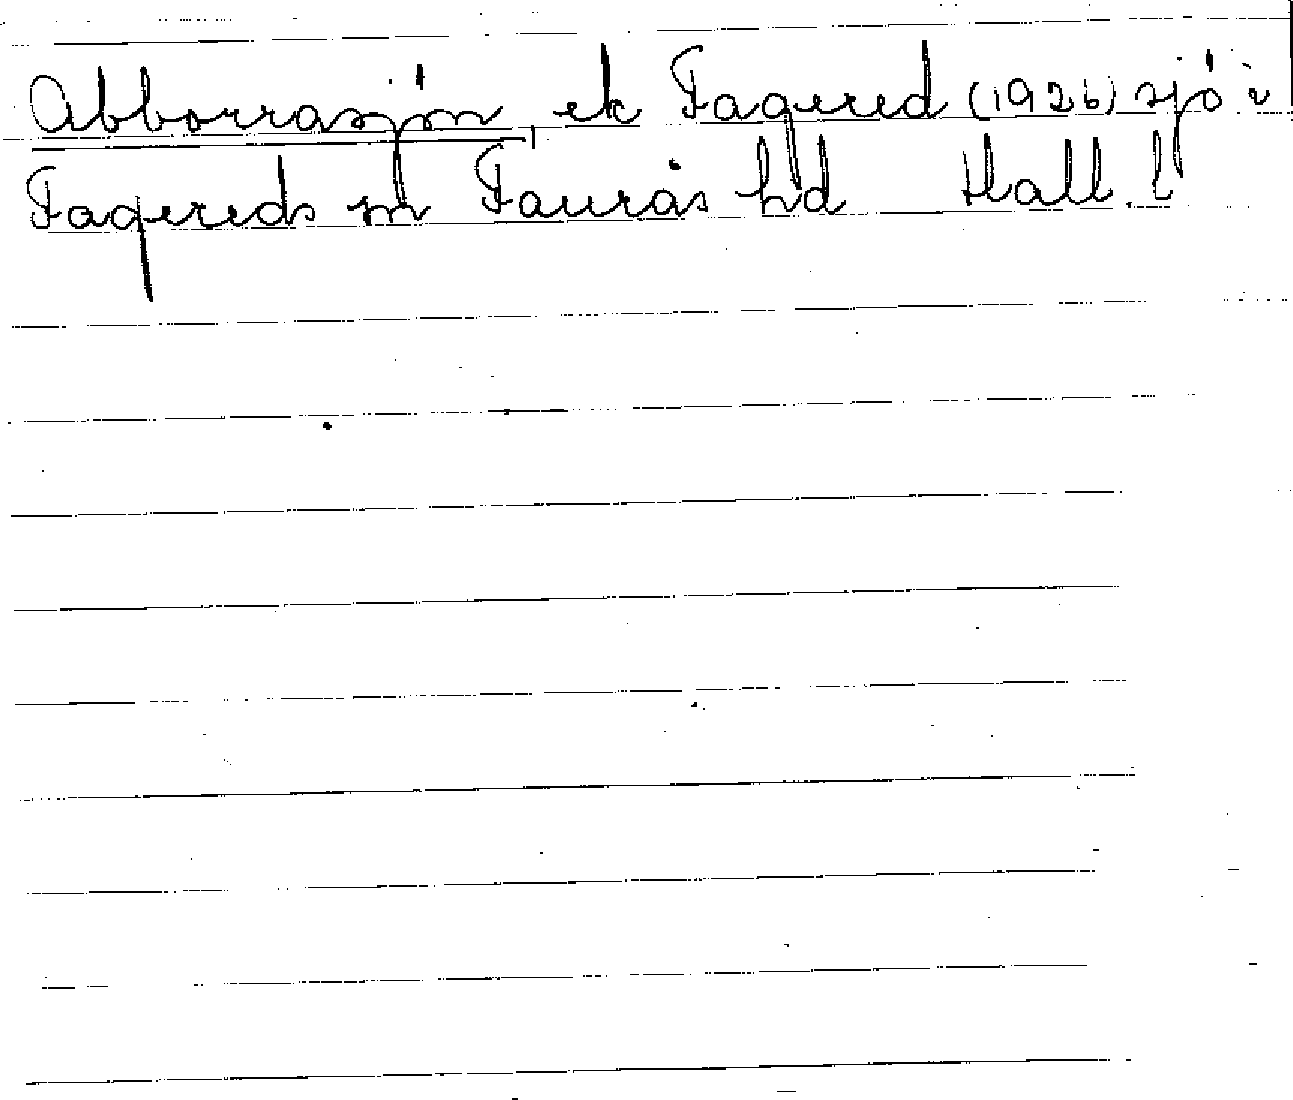 Abborrasjön, ek Fagered (1926) sjö i
Fagereds sn Faurås hd Hall. l